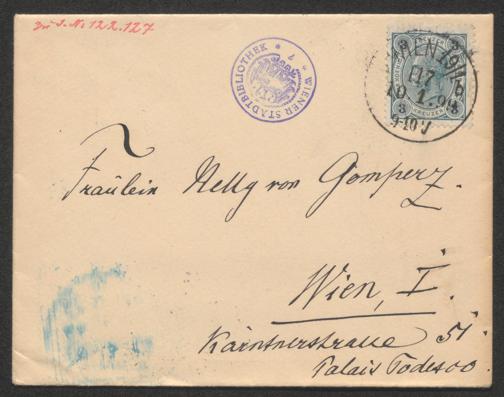 Zu I.N. 122.127
WIENER STADTBIBLIOTHEK
WIEN
10.1.99
9-10V
KREUZER
Fräulein Nelly von Gomperz.
Wien, I.
Kärntnerstrasse 51.
Palais Todesco.